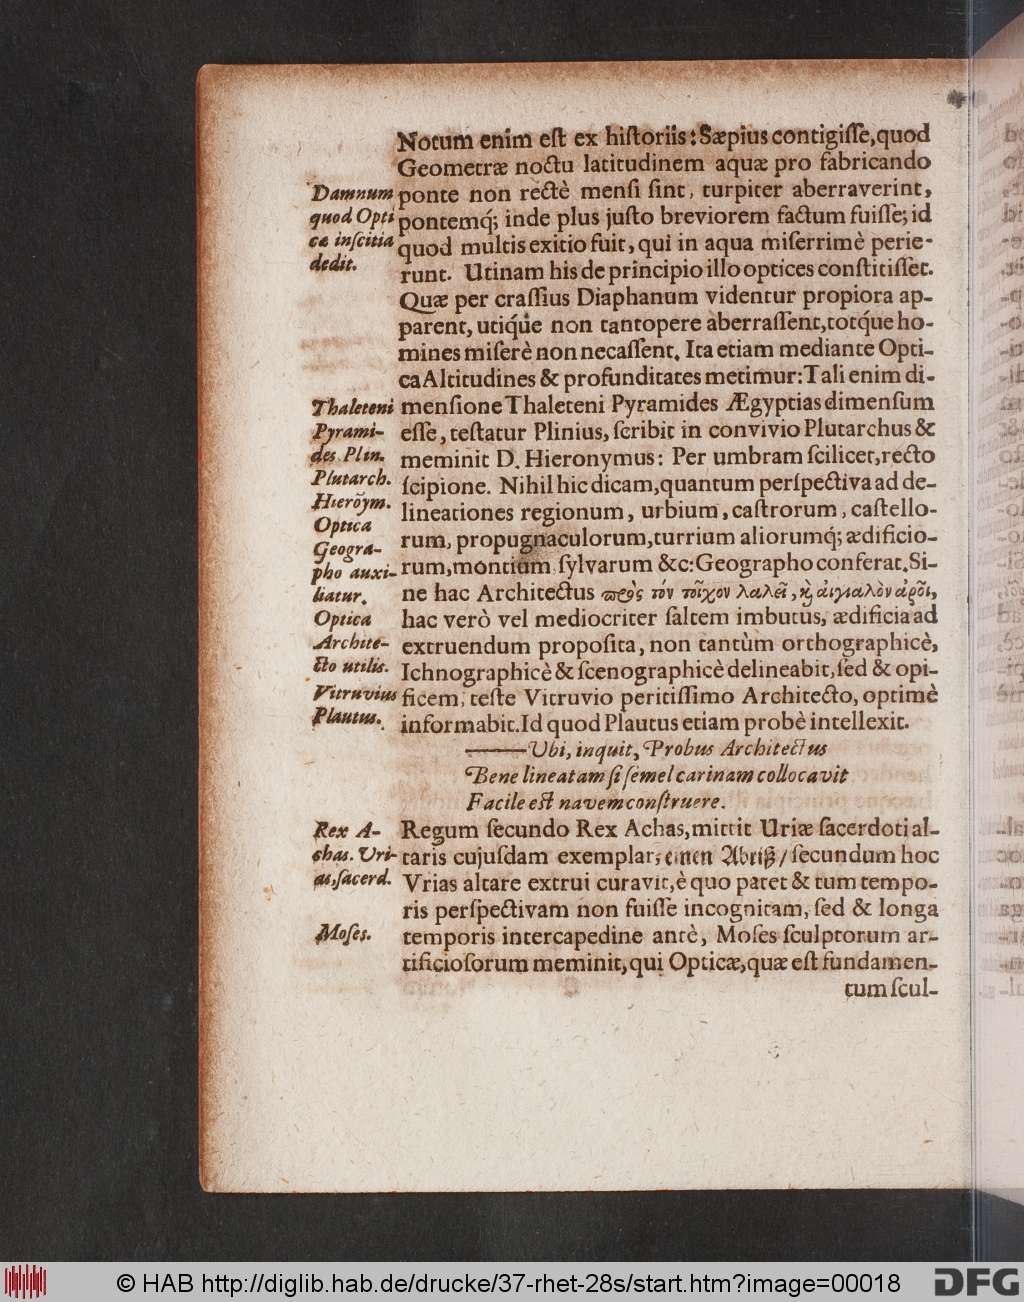 Notum enim eſt ex hiſtoriis: Sæpius contigiſſe, quod
Geometræ noctu latitudinem aquæ pro fabricando
ponte non rectè menſi ſint, turpiter aberraverint,
pontemq́; inde plus juſto breviorem factum fuiſſe; id
quod multis exitio fuit, qui in aqua miſerrimè perie-
runt. Utinam his de principio illo optices conſtitiſſet.
Quæ per craſſius Diaphanum videntur propiora ap-
parent, utiq́ue non tantopere aberraſſent, totq́ue ho-
mines miſerè non necaſſent. Ita etiam mediante Opti-
ca Altitudines & profunditates metimur: Tali enim di-
menſione Thaleteni Pyramides Ægyptias dimenſum
eſſe, teſtatur Plinius, ſcribit in convivio Plutarchus &
meminit D. Hieronymus: Per umbram ſcilicet, recto
ſcipione. Nihil hic dicam, quantum perſpectiva ad de-
lineationes regionum, urbium, caſtrorum, caſtello-
rum, propugnaculorum, turrium aliorumq́; ædificio-
rum, montium ſylvarum &c: Geographo conferat. Si-
ne hac Architectus πρὸς τόν τοῖχον λαλεῖ, ϗ̀ αἰγιαλὸν ἀροῖ,
hac verò vel mediocriter ſaltem imbutus, ædificia ad
extruendum propoſita, non tantùm orthographicè,
Ichnographicè & ſcenographicè delineabit, ſed & opi-
ficem, teſte Vitruvio peritiſſimo Architecto, optimè
informabit. Id quod Plautus etiam probè intellexit.
——Ubi, inquit, Probus Architectus
Bene lineatam ſi ſemel carinam collocavit
Facile eſt navem conſtruere.
Regum ſecundo Rex Achas, mittit Uriæ ſacerdoti al-
taris cujuſdam exemplar, einen Abriß / ſecundum hoc
Vrias altare extrui curavit, è quo patet & tum tempo-
ris perſpectivam non fuiſſe incognitam, ſed & longa
temporis intercapedine antè, Moſes ſculptorum ar-
tificioſorum meminit, qui Opticæ, quæ eſt fundamen-
tum ſcul-
Damnum
quod Opti
cæ inſcitia
dedit.
Thaleteni
Pyrami-
des Plin.
Plutarch.
Hierōym.
Optica
Geogra-
pho auxi-
liatur.
Optica
Archite-
cto utilis.
Vitruvius
Plautus.
Rex A-
chas. Uri-
as, ſacerd.
Moſes.
© HAB http://diglib.hab.de/drucke/37-rhet-28s/start.htm?image=00018
DFG